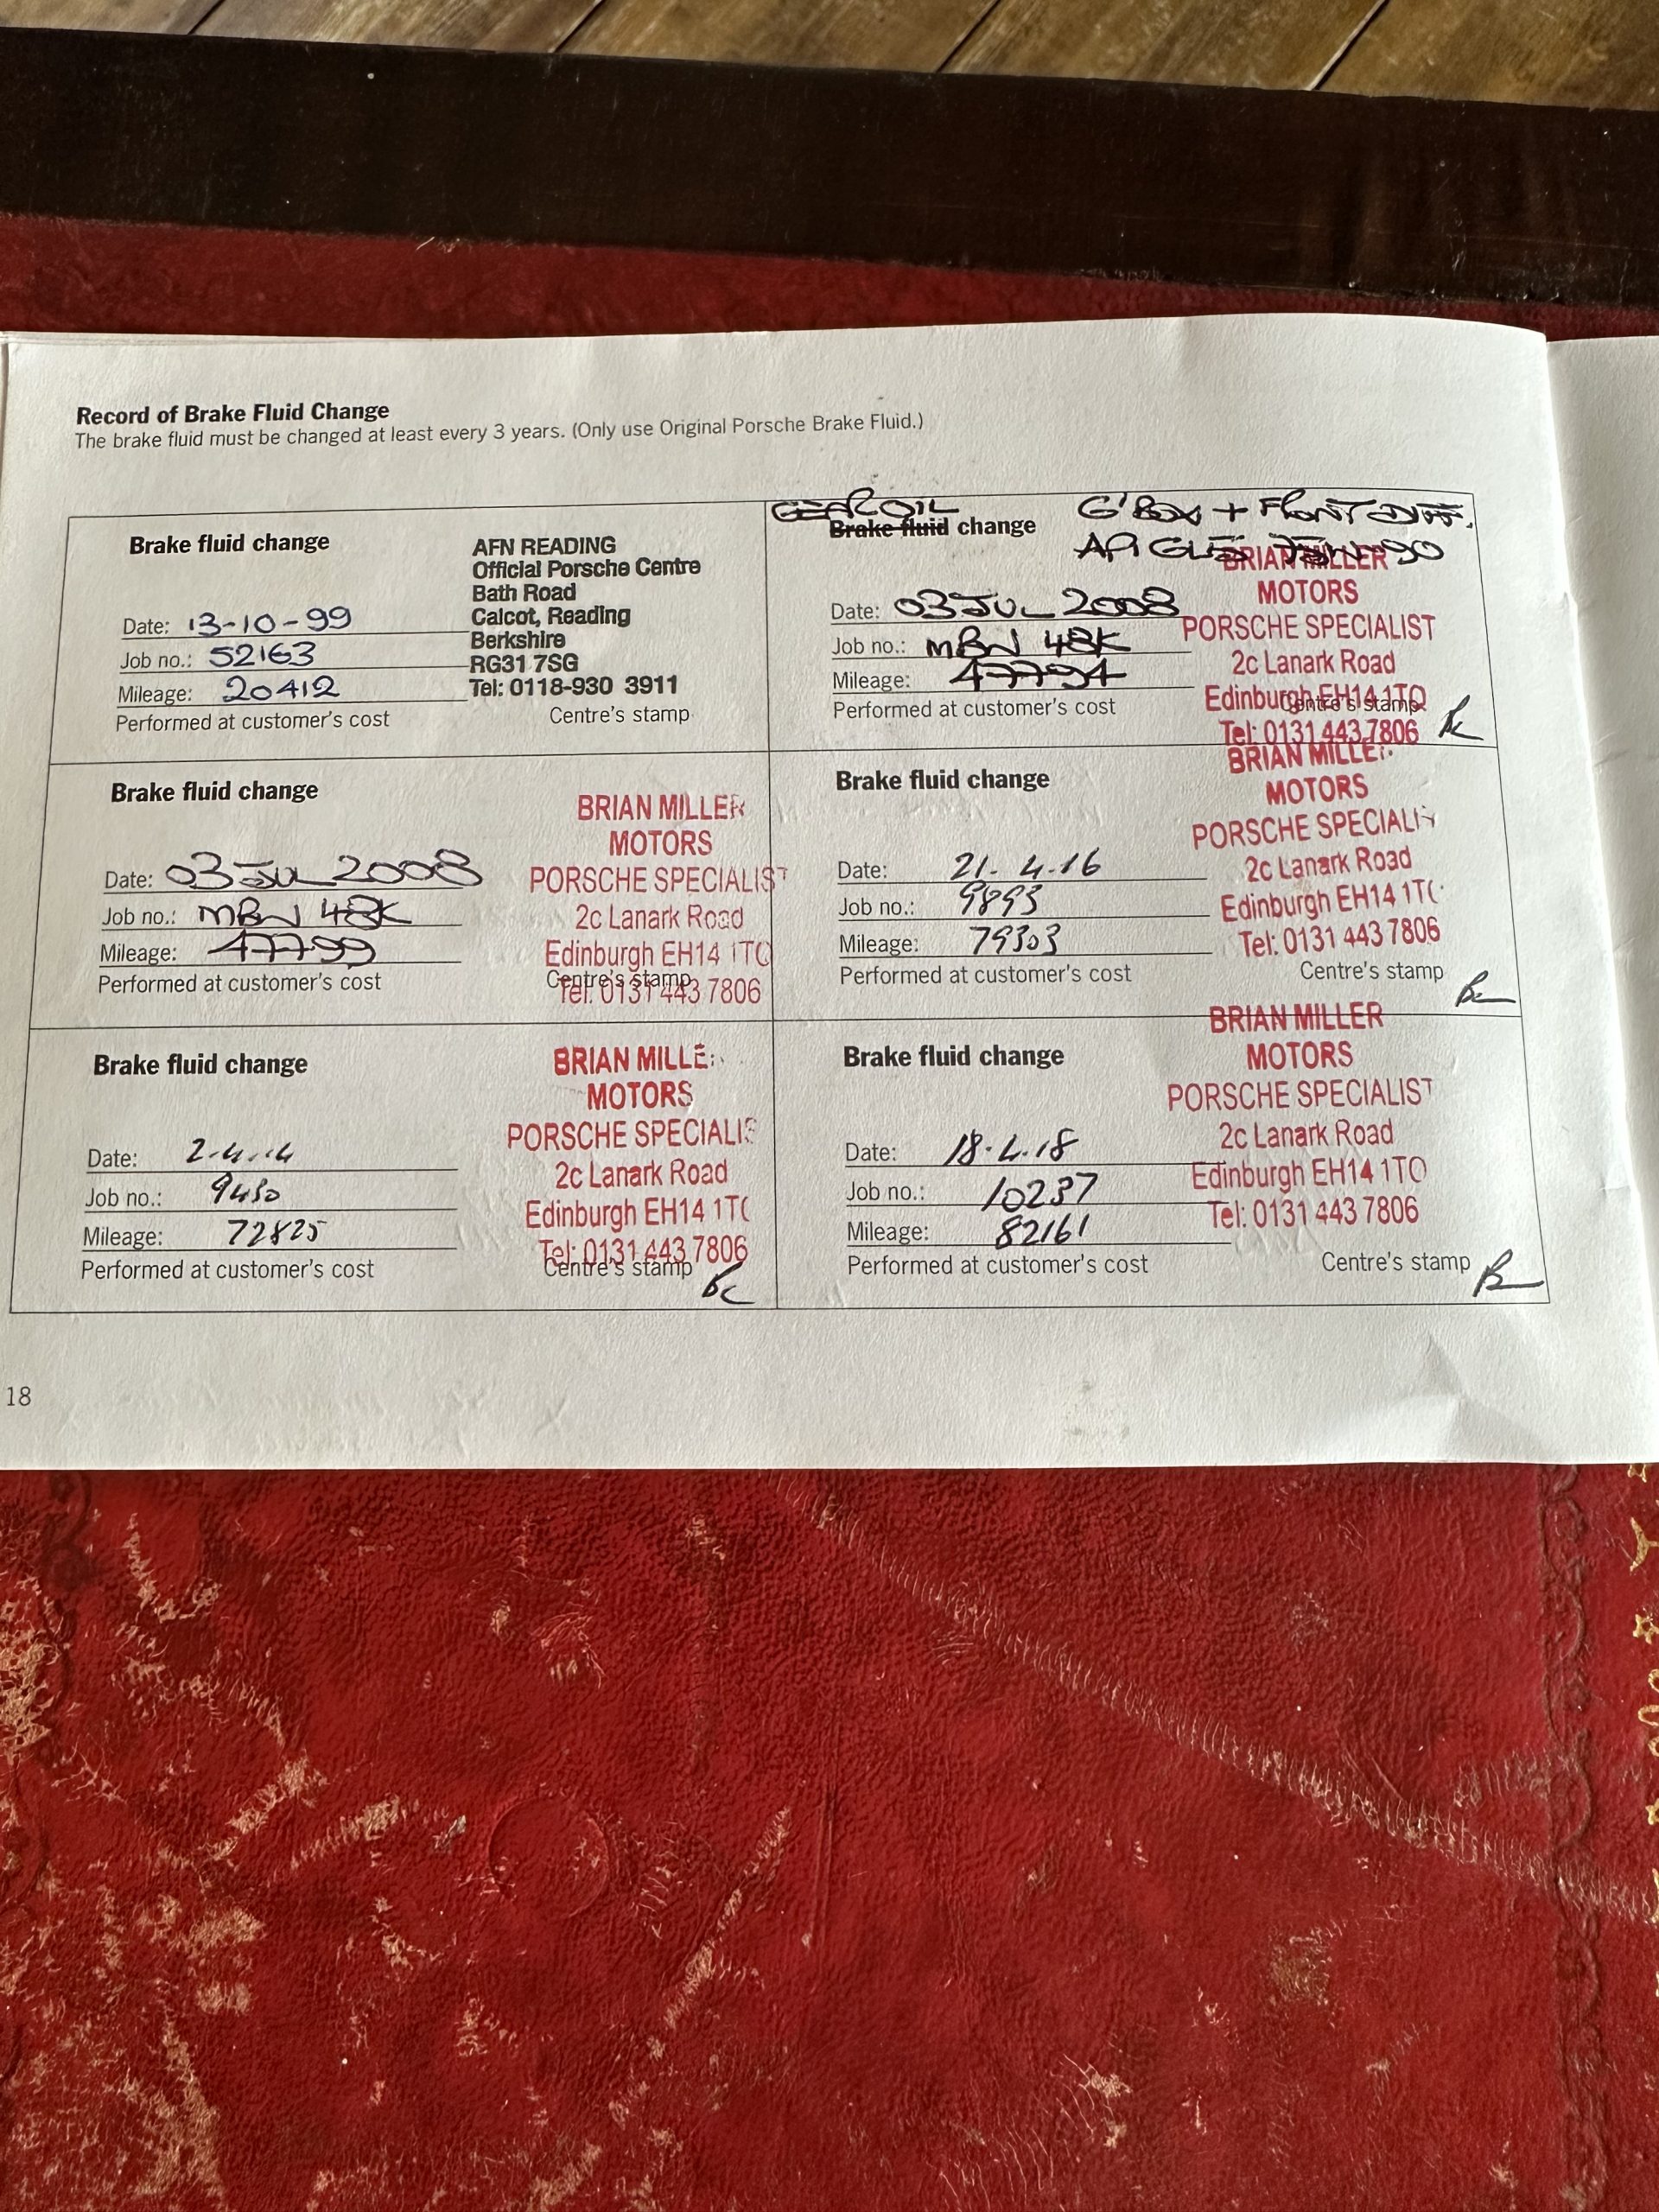 Record of Brake Fluid Change
The brake fluid must be changed at least every 3 years. (Only use Original Porsche Brake Fluid.)
Brake fluid change
AFN READING
Official Porsche Centre
Bath Road
Calcot, Reading
Berkshire
RG31 7SG
Tel: 0118-930 3911
Date: 13-10-99
Job no.: 52163
Mileage: 20412
Performed at customer's cost
Centre's stamp
GEAR OIL
Brake fluid change
G'BOX + FRONT DIFF.
API GL5 90
BRIAN MILLER
MOTORS
PORSCHE SPECIALIST
2c Lanark Road
Edinburgh EH14 1TQ
Tel: 0131 443 7806
Date: 03 JUL 2008
Job no.: MBN 48K
Mileage:
Performed at customer's cost
Centre's stamp
Brake fluid change
BRIAN MILLER
MOTORS
PORSCHE SPECIALIST
2c Lanark Road
Edinburgh EH14 1TQ
Tel: 0131 443 7806
Date: 03 JUL 2008
Job no.: MBN 48K
Mileage: 47799
Performed at customer's cost
Centre's stamp
Brake fluid change
BRIAN MILLE
MOTORS
PORSCHE SPECIALI
2c Lanark Road
Edinburgh EH14 1T
Tel: 0131 443 7806
Date: 21.4.16
Job no.: 9893
Mileage: 79303
Performed at customer's cost
Centre's stamp
Brake fluid change
BRIAN MILLE
MOTORS
PORSCHE SPECIALIS
2c Lanark Road
Edinburgh EH14 1T
Tel: 0131 443 7806
Date: 2.4.14
Job no.: 9450
Mileage: 72825
Performed at customer's cost
Centre's stamp
Brake fluid change
BRIAN MILLER
MOTORS
PORSCHE SPECIALIST
2c Lanark Road
Edinburgh EH14 1TQ
Tel: 0131 443 7806
Date: 18.4.18
Job no.: 10237
Mileage: 82161
Performed at customer's cost
Centre's stamp
18